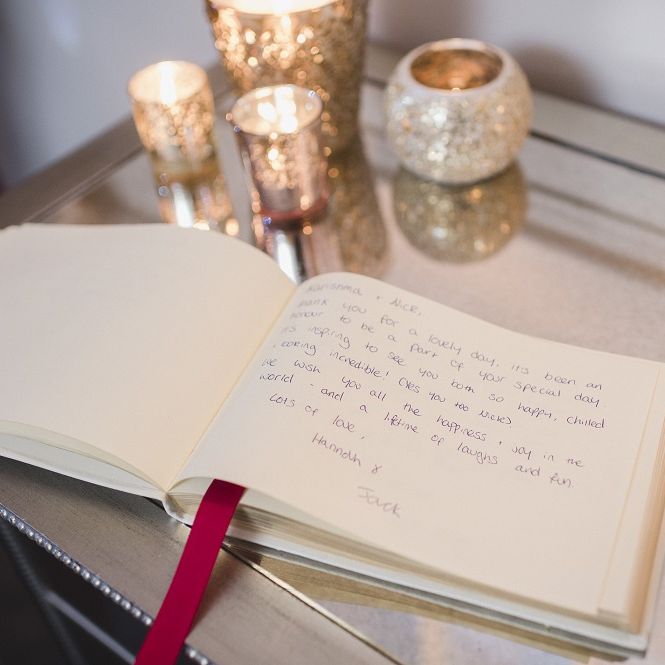 Karishma + Nick,
Thank you for a lovely day, it's been an
honour to be a part of your special day.
It's inspiring to see you both so happy, chilled
+ looking incredible! (Yes you too Nick!)
We wish you all the happiness + joy in the
world - and a lifetime of laughs and fun.
Lots of love,
Hannah &
Jack